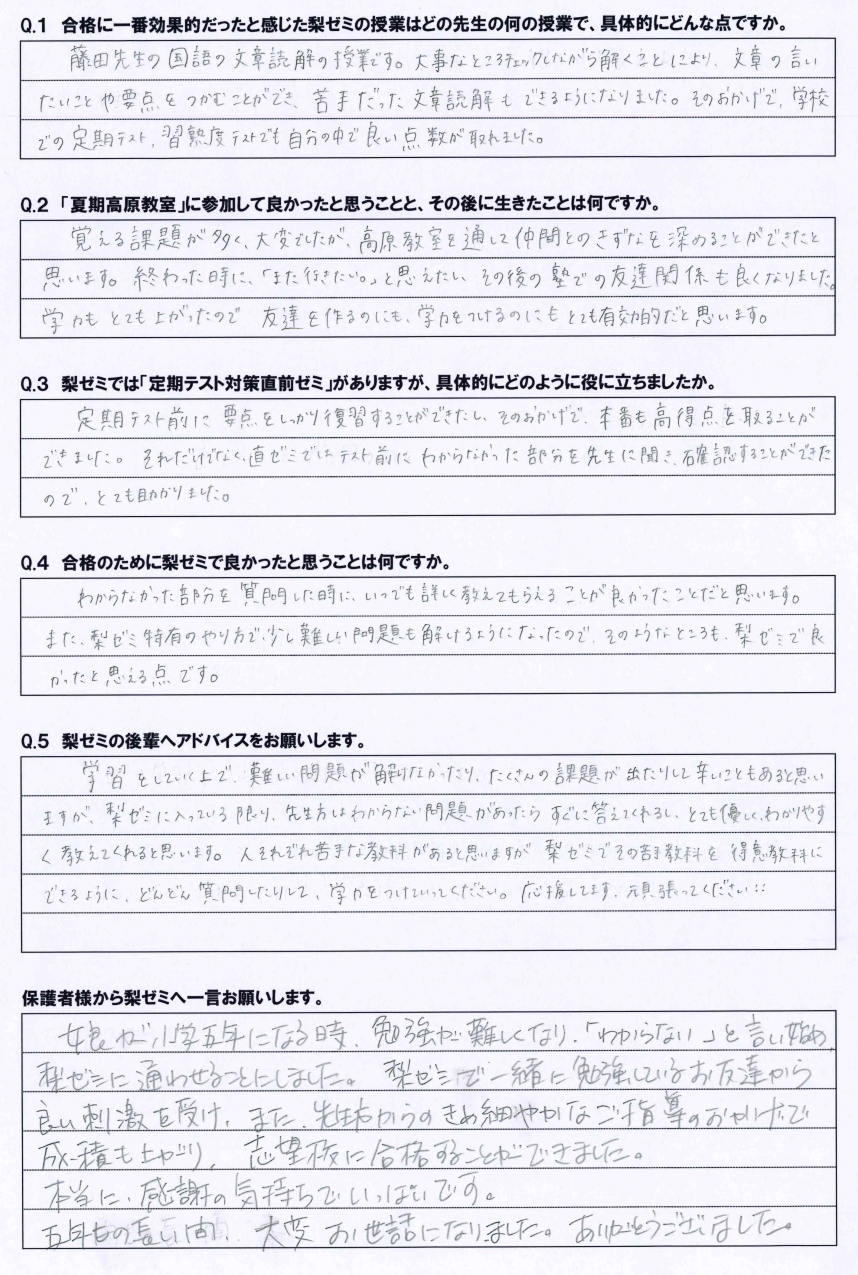 Q.1 合格に一番効果的だったと感じた梨ゼミの授業はどの先生の何の授業で、具体的にどんな点ですか。
藤田先生の国語の文章読解の授業です。大事なところチェックしながら解くことにより、文章の言い
たいことや要点をつかむことができ、苦手だった文章読解もできるようになりました。そのおかげで、学校
での定期テスト、習熟度テストでも自分の中で良い点数が取れました。
Q.2 「夏期高原教室」に参加して良かったと思うことと、その後に生きたことは何ですか。
覚える課題が多く、大変でしたが、高原教室を通して仲間とのきずなを深めることができたと
思います。終わった時に、「また行きたい。」と思えたし、その後の塾での友達関係も良くなりました。
学力もとても上がったので 友達を作るのにも、学力をつけるのにもとても有効的だと思います。
Q.3 梨ゼミでは「定期テスト対策直前ゼミ」がありますが、具体的にどのように役に立ちましたか。
定期テスト前に要点をしっかり復習することができたし、そのおかげで、本番も高得点を取ることが
できました。それだけでなく、直ゼミではテスト前にわからなかった部分を先生に聞き、確認することができた
ので、とても助かりました。
Q.4 合格のために梨ゼミで良かったと思うことは何ですか。
わからなかった部分を質問した時に、いつでも詳しく教えてもらえることが良かったことだと思います。
また、梨ゼミ特有のやり方で、少し難しい問題も解けるようになったので、そのようなところも、梨ゼミで良
かったと思える点です。
Q.5 梨ゼミの後輩へアドバイスをお願いします。
学習をしていく上で、難しい問題が解けなかったり、たくさんの課題が出たりして辛いこともあると思い
ますが、梨ゼミに入っている限り、先生方はわからない問題があったらすぐに答えてくれるし、とても優しく、わかりやす
く教えてくれると思います。人それぞれ苦手な教科があると思いますが 梨ゼミでその苦手教科を得意教科に
できるように、どんどん質問したりして、学力をつけていってください。応援してます、頑張ってください!!
保護者様から梨ゼミへ一言お願いします。
娘が小学五年になる時、勉強が難しくなり、「わからない」と言い始め、
梨ゼミに通わせることにしました。梨ゼミで一緒に勉強しているお友達から
良い刺激を受け、また、先生方からのきめ細やかなご指導のおかげで
成績も上がり、志望校に合格することができました。
本当に、感謝の気持ちでいっぱいです。
五年もの長い間、大変お世話になりました。ありがとうございました。